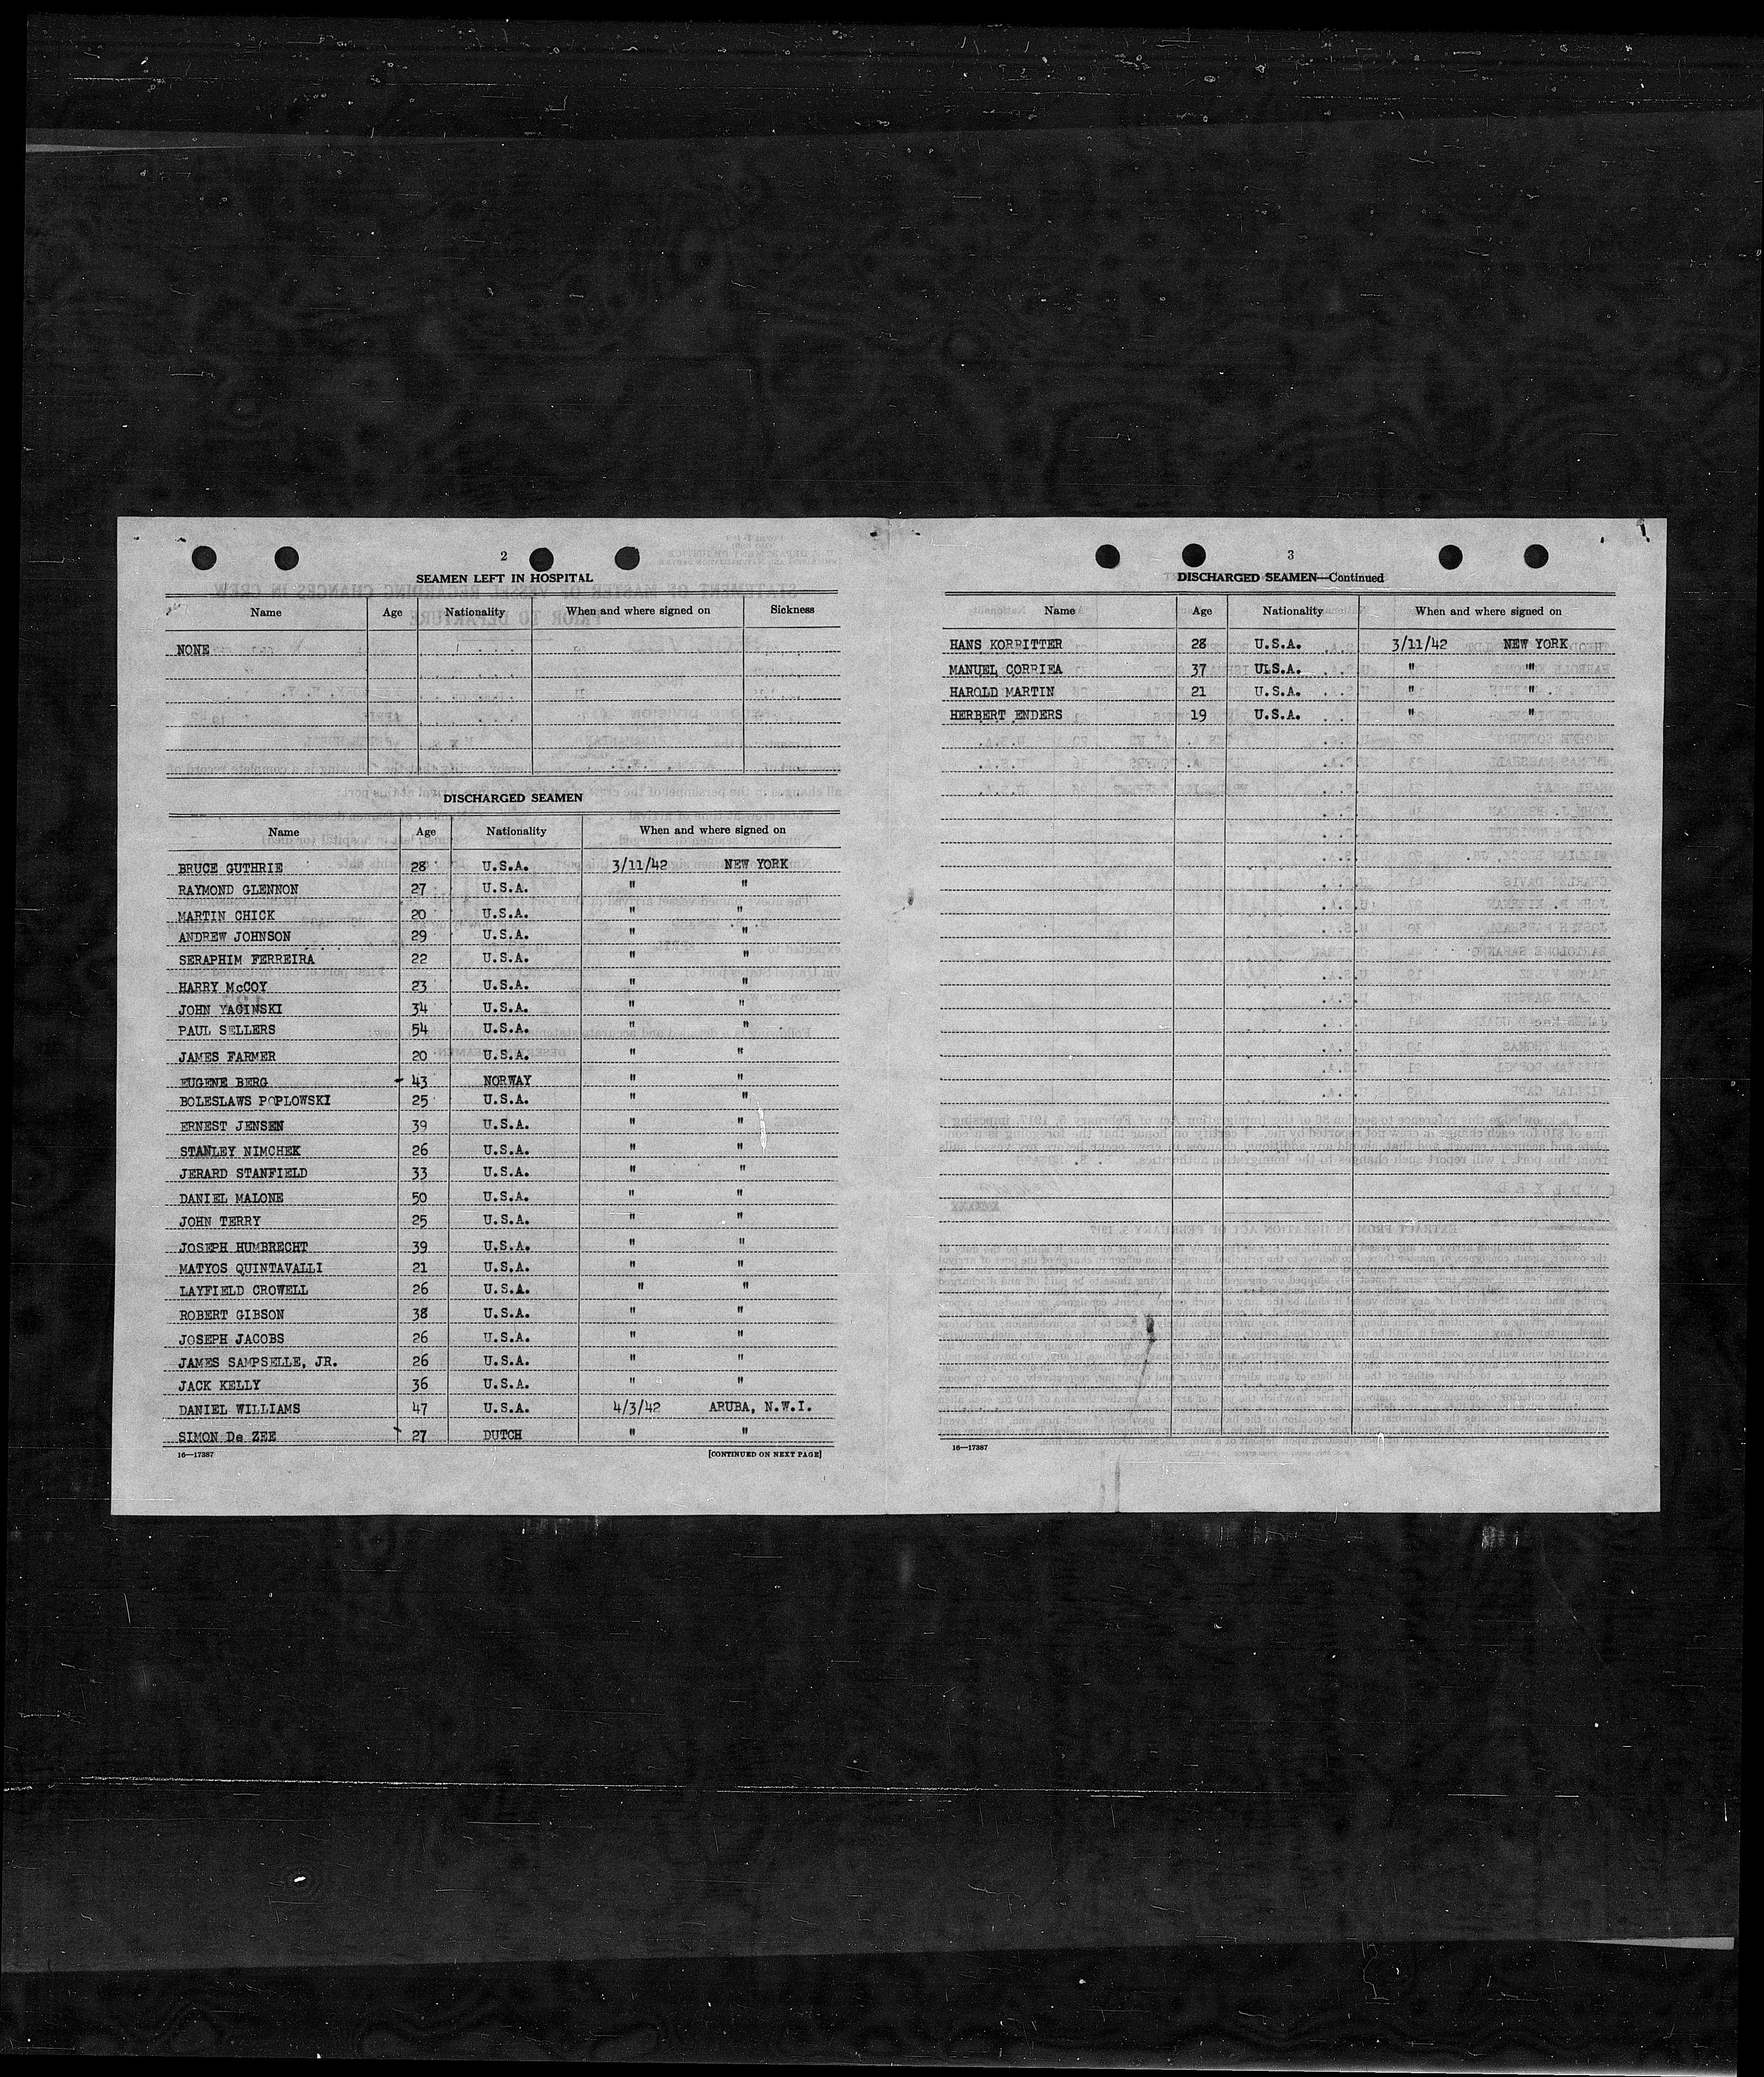 2
SEAMEN LEFT IN HOSPITAL
Name Age Nationality When and where signed on Sickness
NONE
DISCHARGED SEAMEN
Name Age Nationality When and where signed on
BRUCE GUTHRIE 28 U.S.A. 3/11/42 NEW YORK
RAYMOND GLENNON 27 U.S.A. " "
MARTIN CHICK 20 U.S.A. " "
ANDREW JOHNSON 29 U.S.A. " "
SERAPHIM FERREIRA 22 U.S.A. " "
HARRY McCOY 23 U.S.A. " "
JOHN YAGINSKI 34 U.S.A. " "
PAUL SELLERS 54 U.S.A. " "
JAMES FARMER 20 U.S.A. " "
EUGENE BERG 43 NORWAY " "
BOLESLAWS POPLOWSKI 25 U.S.A. " "
ERNEST JENSEN 39 U.S.A. " "
STANLEY NIMCHEK 26 U.S.A. " "
JERARD STANFIELD 33 U.S.A. " "
DANIEL MALONE 50 U.S.A. " "
JOHN TERRY 25 U.S.A. " "
JOSEPH HUMBRECHT 39 U.S.A. " "
MATYOS QUINTAVALLI 21 U.S.A. " "
LAYFIELD CROWELL 26 U.S.A. " "
ROBERT GIBSON 38 U.S.A. " "
JOSEPH JACOBS 26 U.S.A. " "
JAMES SAMPSELLE, JR. 26 U.S.A. " "
JACK KELLY 36 U.S.A. " "
DANIEL WILLIAMS 47 U.S.A. 4/3/42 ARUBA, N.W.I.
SIMON De ZEE 27 DUTCH " "
16—17387 [CONTINUED ON NEXT PAGE]
3
DISCHARGED SEAMEN—Continued
Name Age Nationality When and where signed on
HANS KORRITTER 28 U.S.A. 3/11/42 NEW YORK
MANUEL CORRIEA 37 U.S.A. " "
HAROLD MARTIN 21 U.S.A. " "
HERBERT ENDERS 19 U.S.A. " "
16—17387